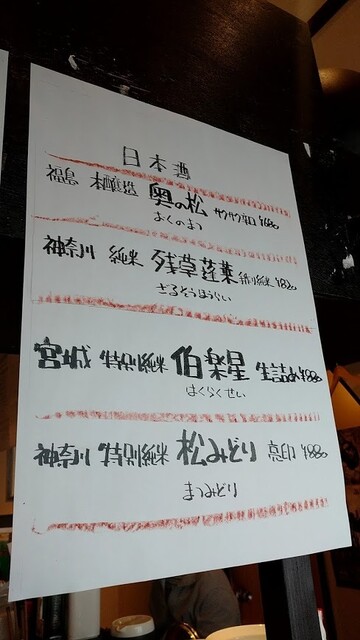 日本酒
福島 本醸造 奥の松 サクサク辛口 ¥680
おくのまつ
神奈川 純米 残草蓬莱 ¥820
ざるそうほうらい
宮城 特別純米 伯楽星 生詰め ¥880
はくらくせい
神奈川 特別純米 松みどり ¥880
まつみどり